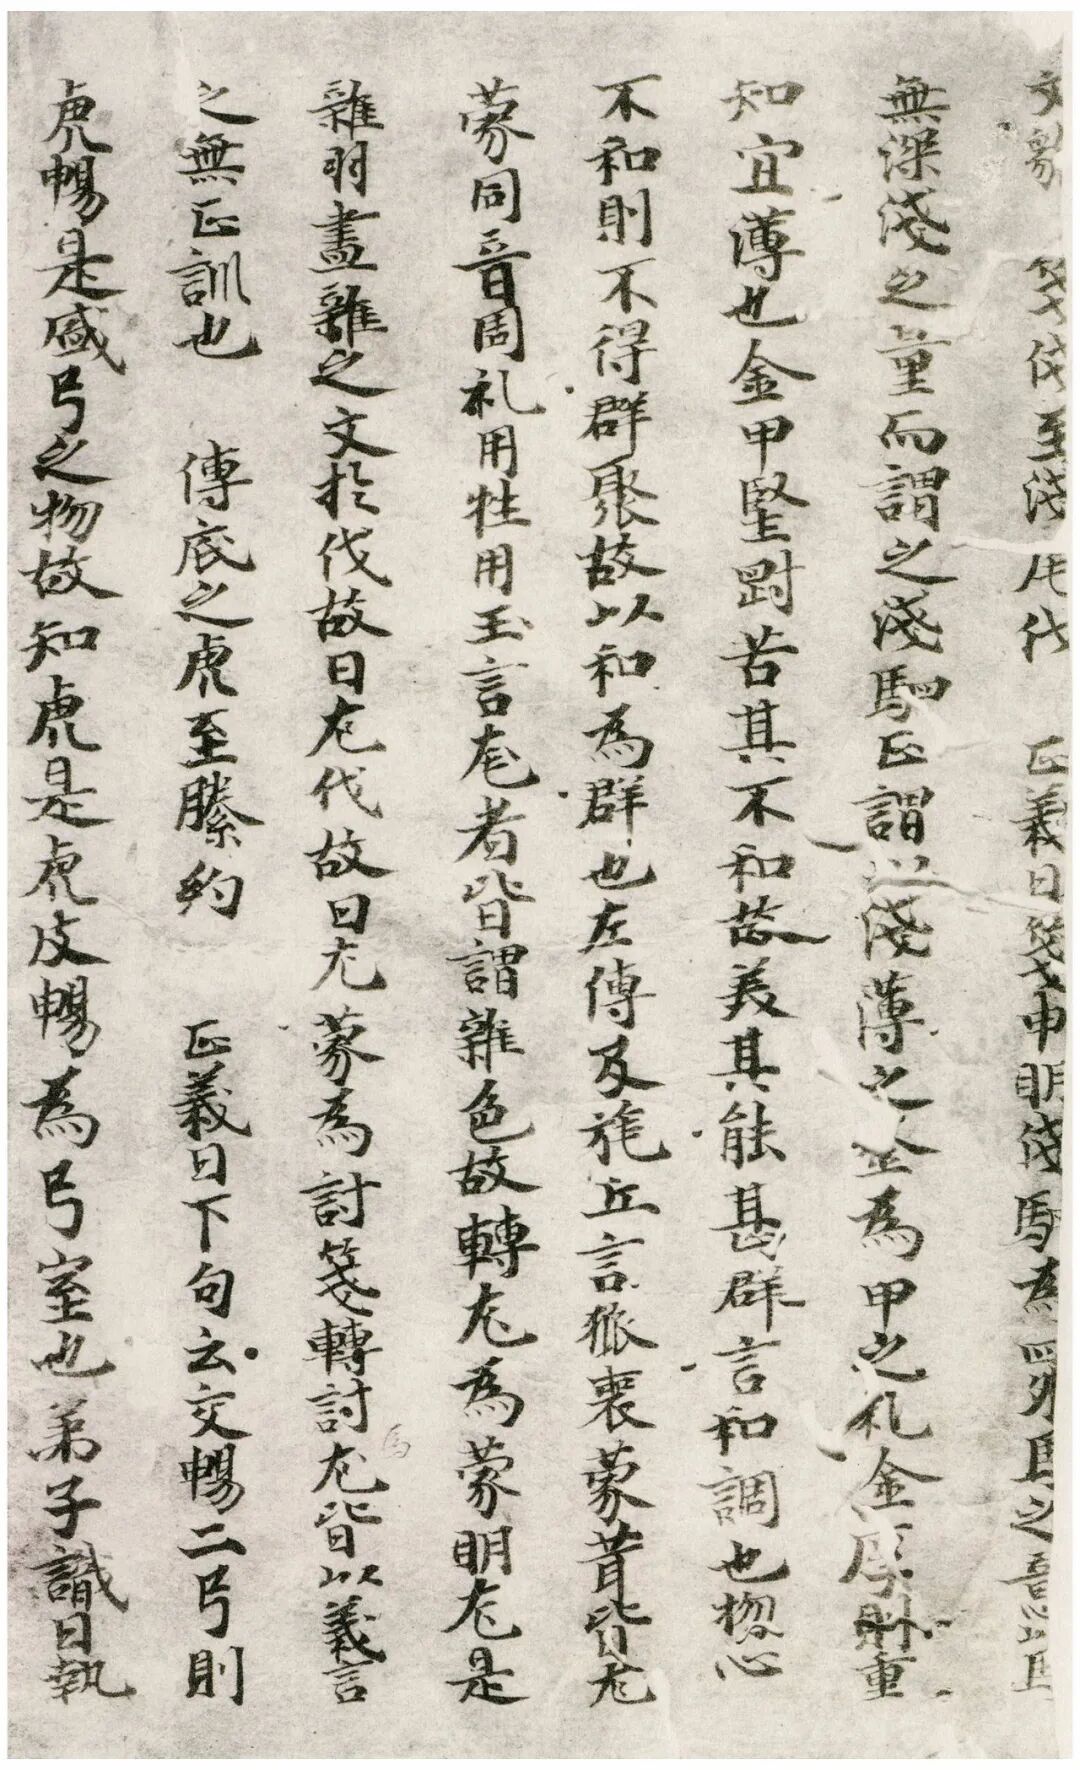 文 箋伐至淺 伐 正義曰箋申明俴駟為四 馬之意以馬
無深淺之量而謂之淺駟正謂以淺薄之金為甲之札金厚則重
知宜薄也金甲堅對苦其不和故美其能甚群言和調也物心
不和則不得群聚故以和為群也左傳及旄丘言狐裘蒙茸皆尨
蒙同音周礼用牲用玉言尨者皆謂雜色故轉尨為蒙明尨是
雜羽畫雜之文於伐故曰尨伐故曰尨蒙為討箋轉討為尨皆以義言
之無正訓也 傳底之虎至縢約 正義曰下句云交暢二弓則
虎暢是盛弓之物故知虎是虎皮暢為弓室也弟子識曰執